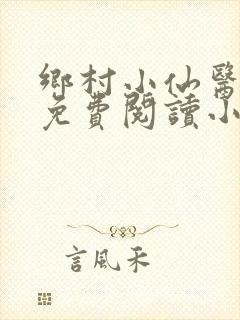 鄉村小仙醫
免費閱讀小
言風禾